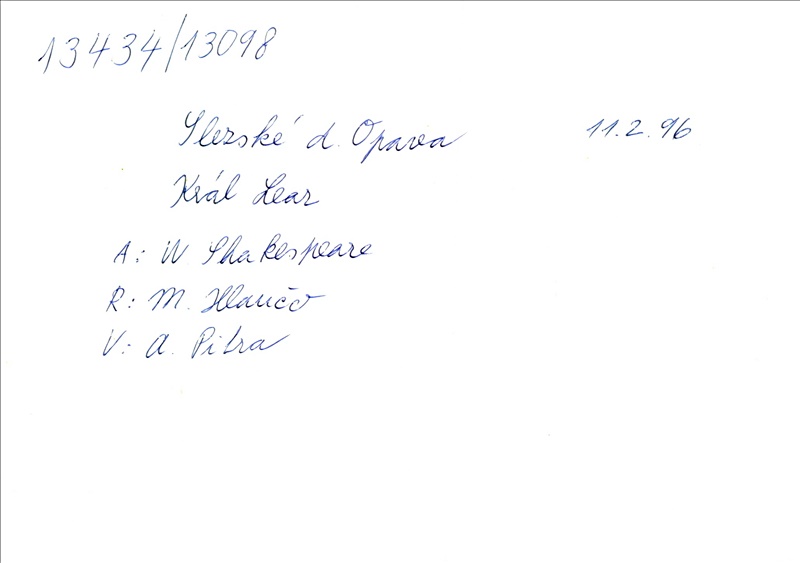 13434/13098
Slezské d. Opava 11.2.96
Král Lear
A: W Shakespeare
R: M.
V: A. Pitra